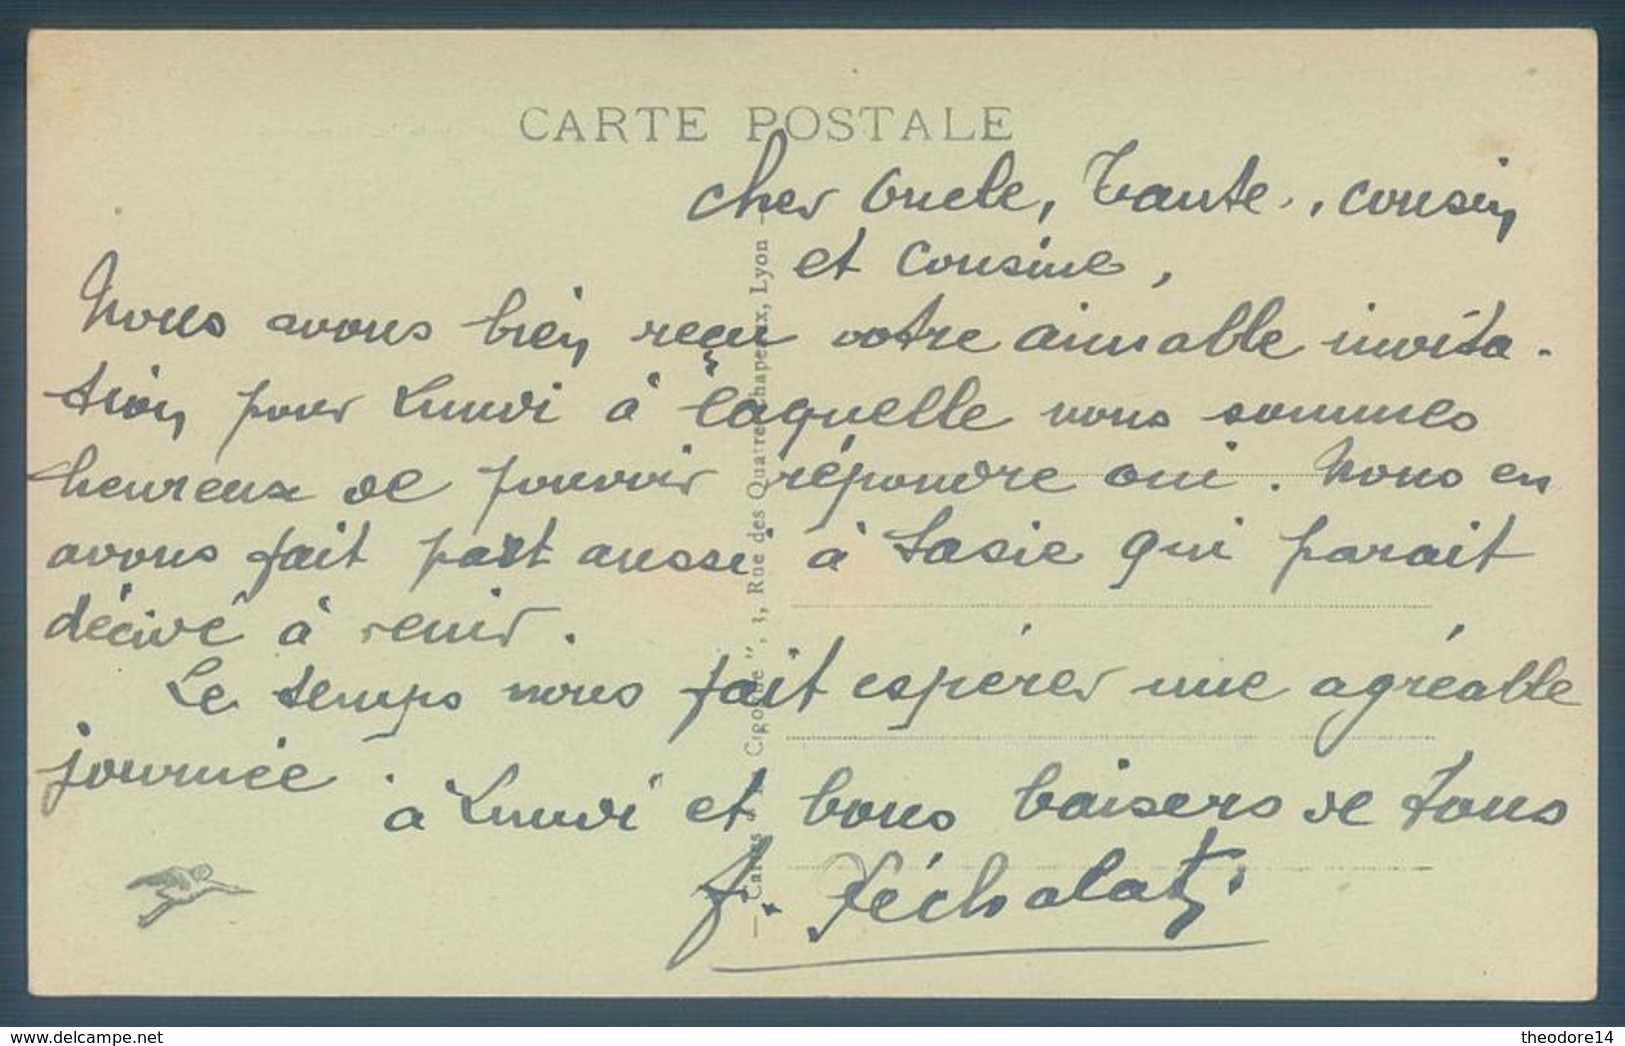 CARTE POSTALE
cher Oncle, Tante, cousin
et cousine,
Nous avons bien reçu votre aimable invita-
tion pour Lundi à laquelle nous sommes
heureux de pouvoir répondre oui. Nous en
avons fait part aussi à qui parait
décidé à venir.
Le temps nous fait espérer une agréable
journée.
à Lundi et bons baisers de tous
f.
— Cartes "La Cigogne", 3, Rue des Quatre-Chapeaux, Lyon —
www.delcampe.net
theodore14